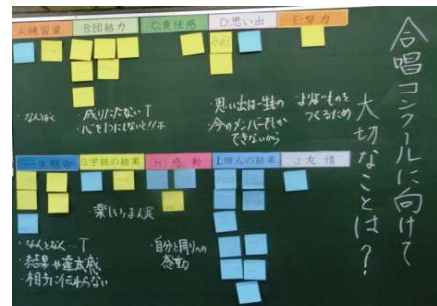 合唱コンクールに向けて
大切なことは?
A:練習量
B:団結力
C:責任感
D:思い出
E:努力
・なんとなく
・成りたたない T
・思い出は一生もの
・今のメンバーでしか
できないから
よりよいものを
つくるため
一生懸命
学級の結果
H:感動
I個人の結果
J:友情
楽しい
・なんとなく…T
・結果≠達成感
・相手に伝わらない
・自分と周りへの
感動